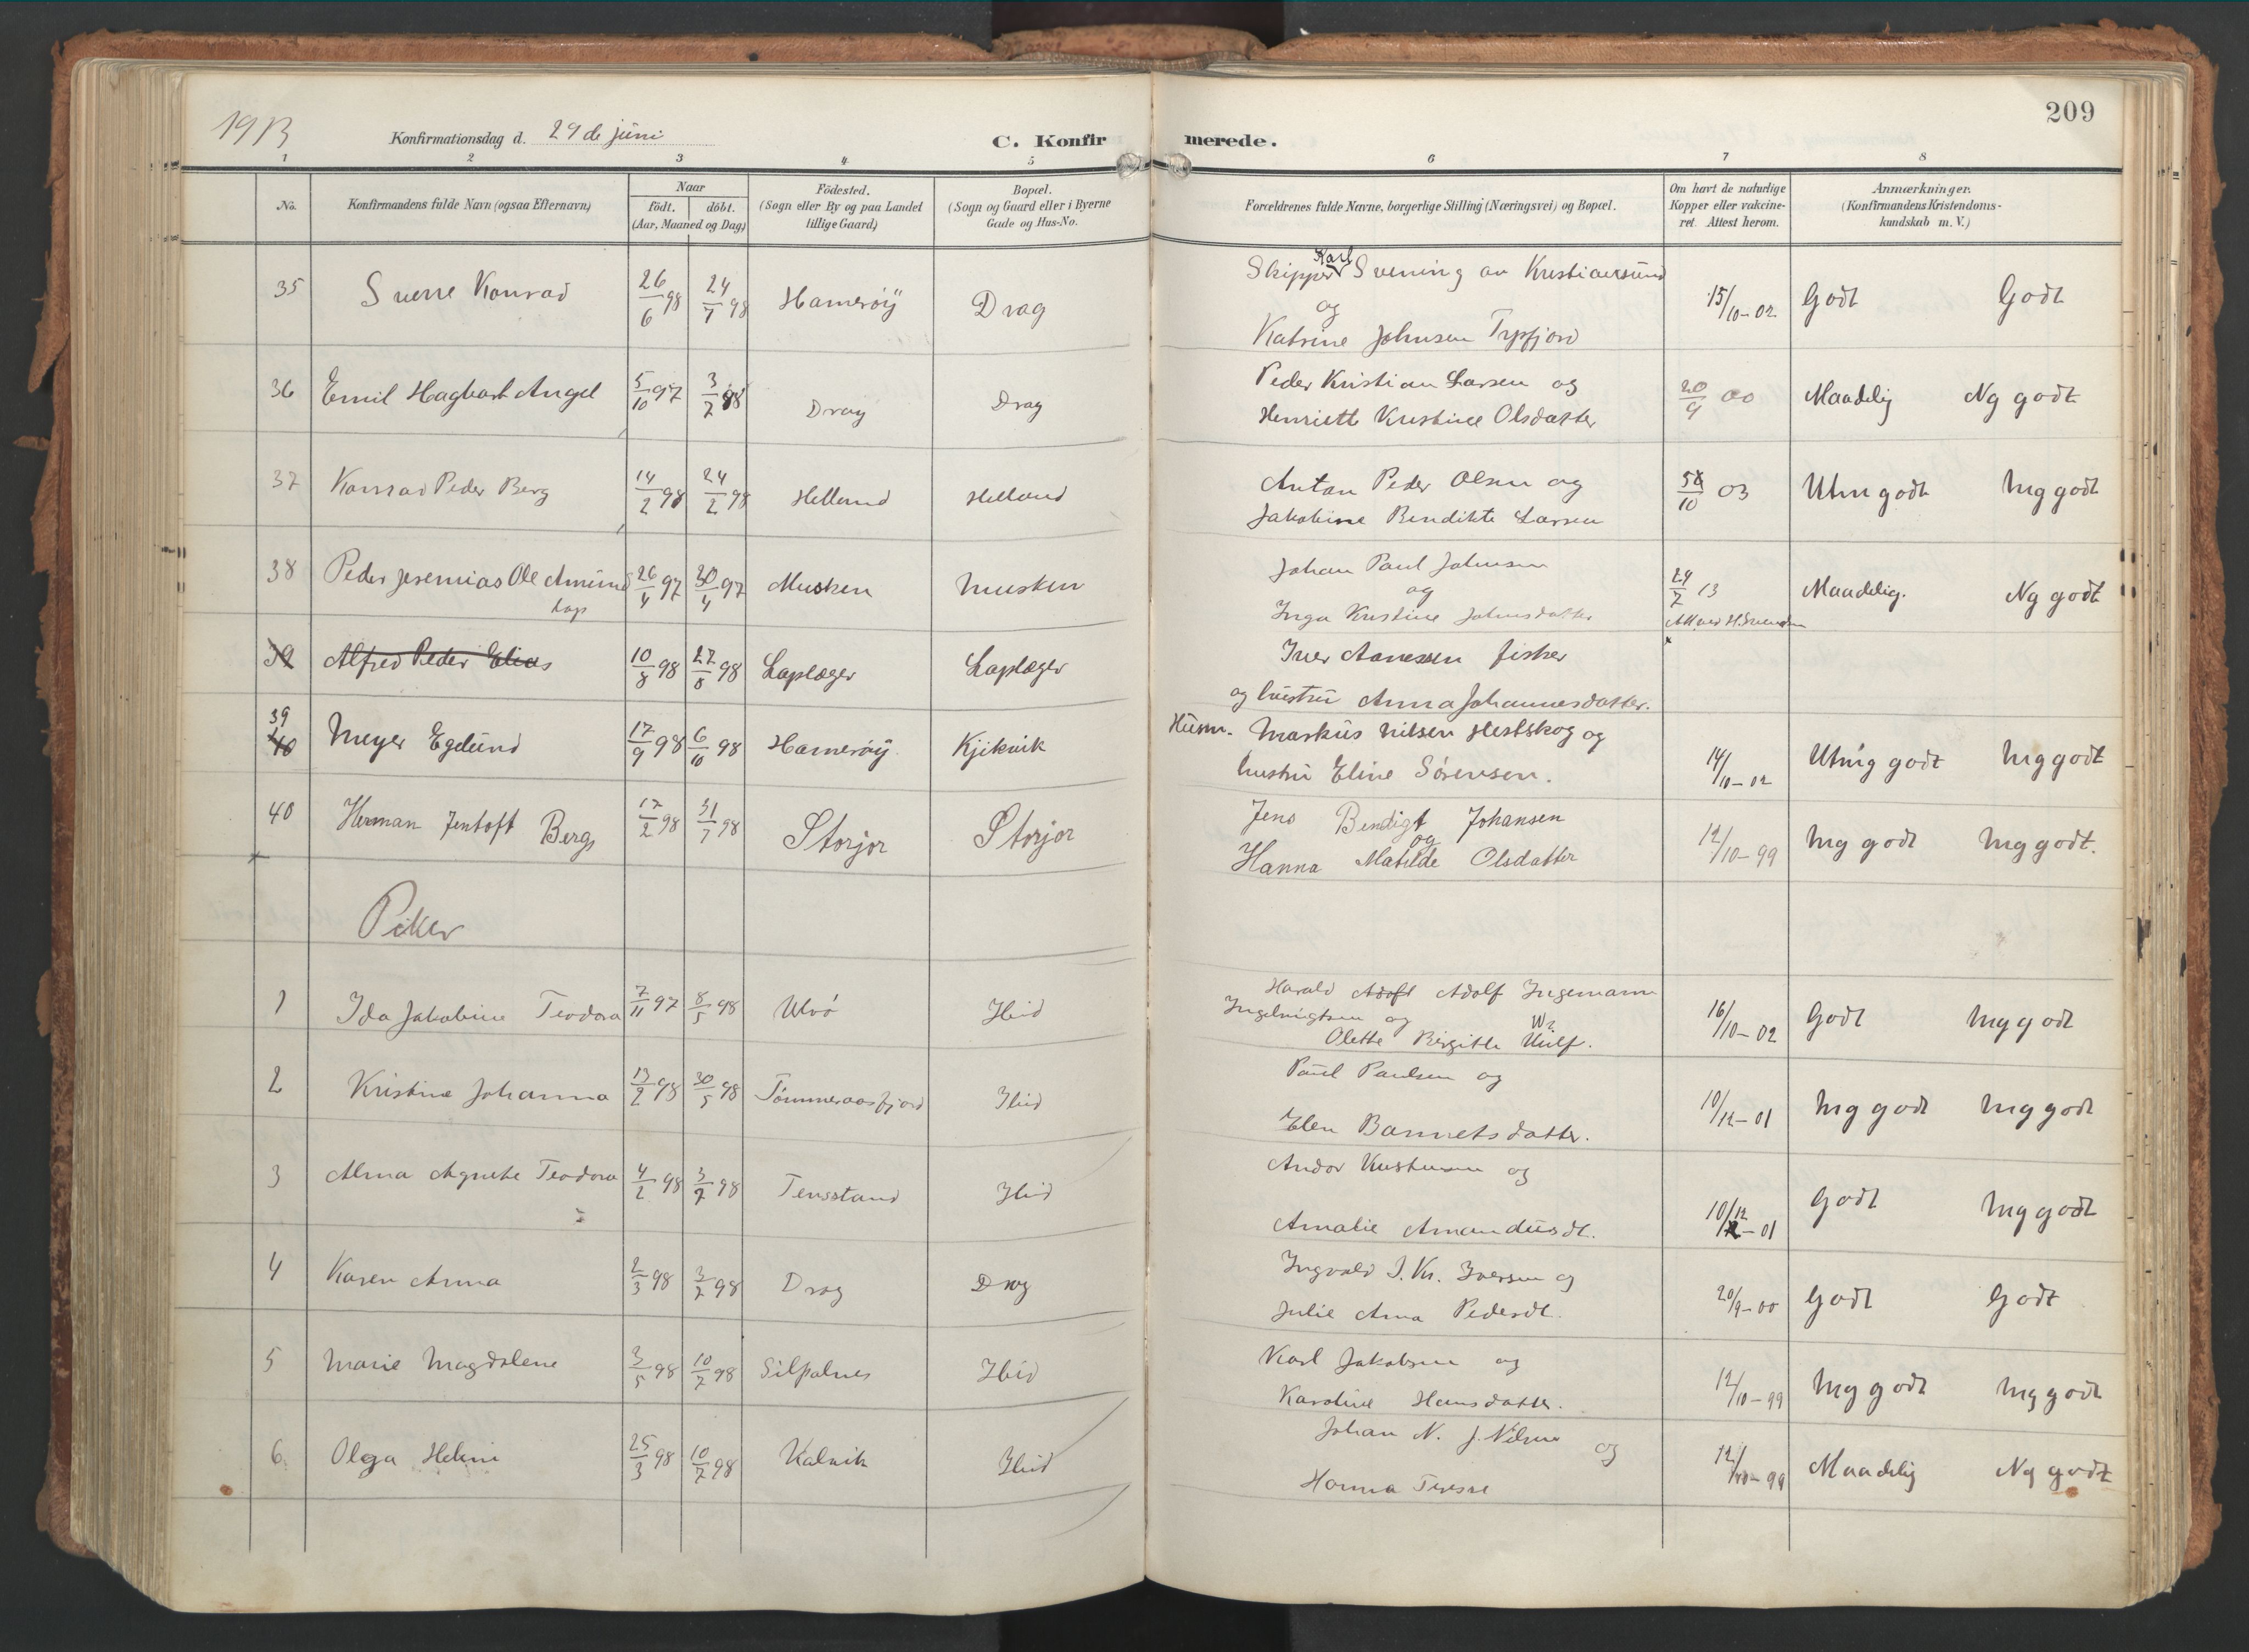 209
1913 Konfirmationsdag d. 29 de juni C. Konfirmerede.
1 2 3 4 5 6 7 8
No.
Konfirmandens fulde Navn (ogsaa Efternavn)
Naar
födt. döbt.
(Aar, Maaned og Dag)
Födested.
(Sogn eller By og paa Landet
tillige Gaard)
Bopæl.
(Sogn og Gaard eller i Byerne
Gade og Hus-No.
Forældrenes fulde Navne, borgerlige Stilling (Næringsvei) og Bopæl.
Om havt de naturlige
Kopper eller vakcine-
ret. Attest herom.
Anmærkninger.
(Konfirmandens Kristendoms-
kundskab m. V.)
35 Sverre Konrad 26/6 98 24/7 98 Hamerøy Drag Skipper Karl Svening av Kristiansund 15/10-02 Godt Godt
og
Katrine Johnsen Tysfjord
36 Emil Hagbart Angel 5/10 97 3/7 98 Drag Drag Peder Kristian Larsen og 20/9 00 Maadelig Ng godt
Henriette Kristine Olsdatter
37 Konrad Peder Berg 14/2 98 24/2 98 Helland Helland Anton Peder Olsen og 10 03 godt Mg godt
Jakobine Bendikte Larsen
38 Peder Jeremias Ole Amund 26/4 97 30/4 97 Musken Musken Johan Paul Johnsen 13 Maadelig. Ng godt
Lap og
Inga Kristine Johnsdatter
39 Alfred Peder Elias 10/8 98 27/8 98 Laplæger Laplæger Iver Aanessen fisker
og hustru Anna Johannesdatter.
39
40 Meyer Egelund 17/9 98 6/10 98 Hamerøy Kjikvik Husm. Markus Nilsen Hestskog og 14/10-02 godt Mg godt
hustru Eline Sørensen.
40 Herman Jentoft Berg 17/2 98 31/7 98 Storjor Storjor Jens Bendigt Johansen 12/10-99 Mg godt Mg godt.
og
Hanna Matilde Olsdatter
Piker
1 Ida Jakobine Teodora 7/11 97 8/5 98 Ulvø Ibid Harald Adoft Adolf Ingemann 16/10-02 Godt Mg godt
og
Olette Birgitte
2 Kristine Johanna 13/2 98 30/5 98 Tømmeraasfjord Ibid Paul Paulsen og 10/12-01 Mg godt Mg godt
Elen Bannetsdatter.
3 Alma Agnete Teodora 4/2 98 3/7 98 Tensstand Ibid Andor Kristensen og 10/12-01 Godt Mg godt
Amalie Amandusdt.
4 Karen Anna 2/3 98 3/7 98 Drag Drag Ingvald J. Kr. Iversen og 20/9-00 Godt Godt
Julie Anna Pedersdt.
5 Marie Magdalene 3/5 98 10/7 98 Silpalnes Ibid Karl Jakobsen og 12/10-99 Mg godt Mg godt
Karoline Hansdatter.
6 Olga Heline 25/3 98 10/7 98 Kalvik Ibid Johan N. J. Nilsen og 12/10-99 Maadelig Ng godt
Hanna Terese